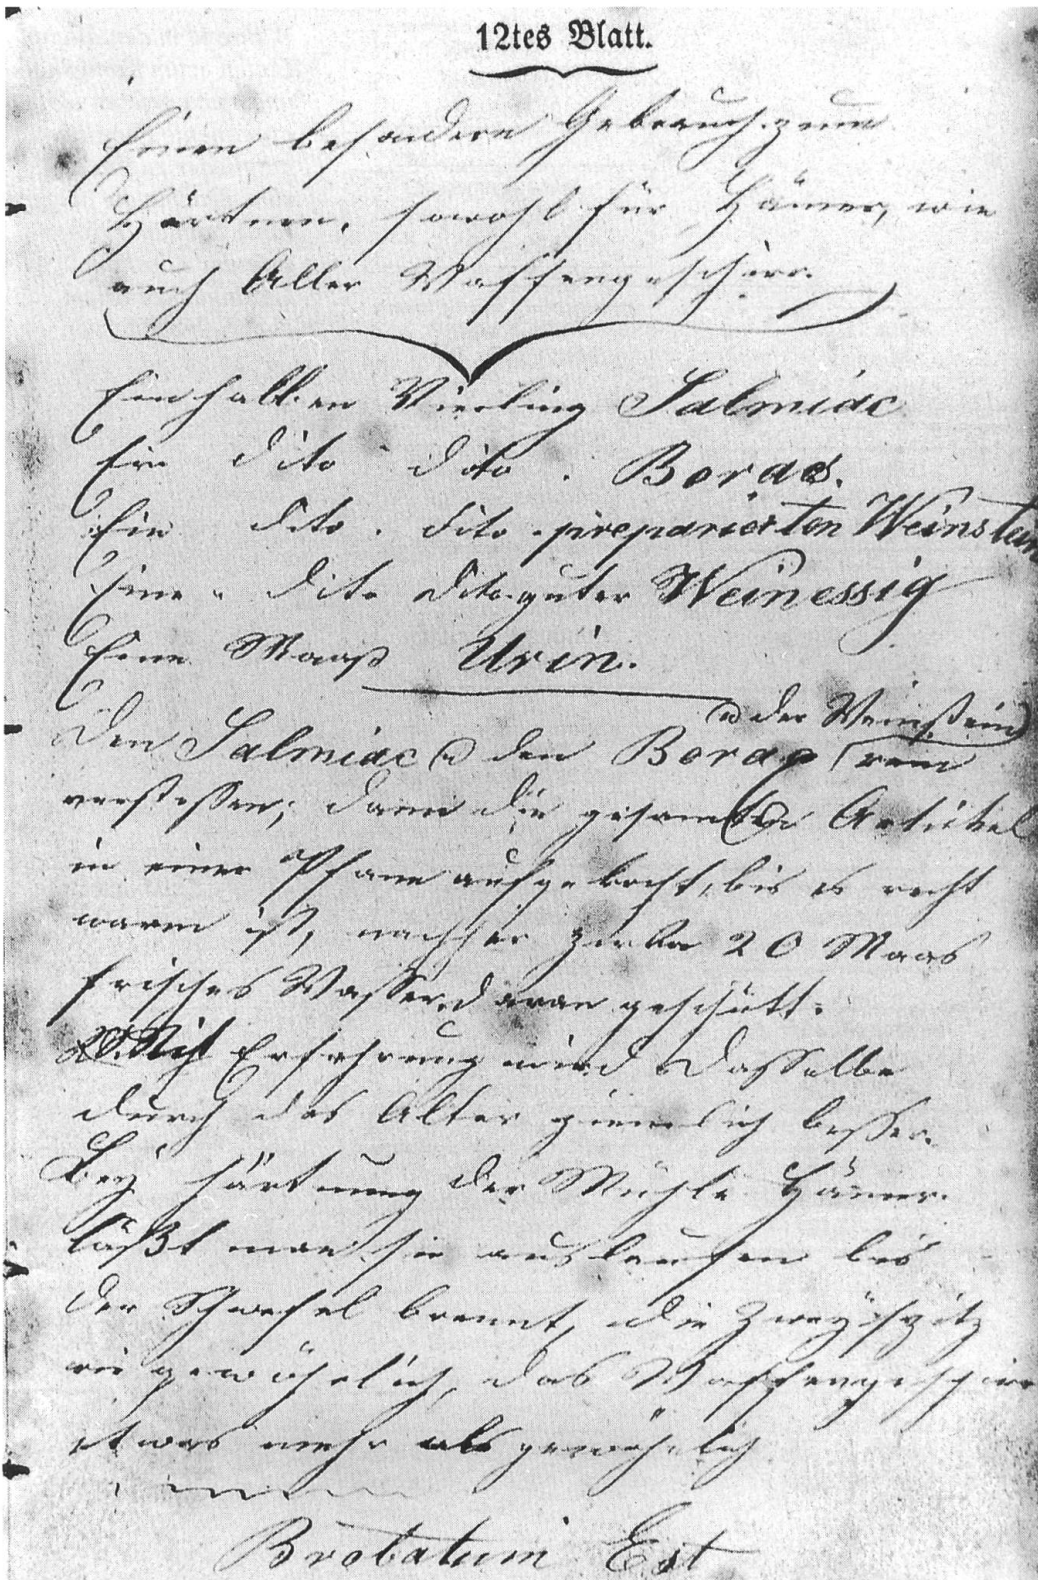 12tes Blatt.
Einen besondern Gebrauch zum
Härtnen, sowohl für Hämer, wie
auch Aller Waffengeschirr.
Ein halben Vierling Salmiac
Ein dito dito. Borax.
Ein dito. dito. preparierten Weinstein
Eine dito dito guter Weinessig
Eine Maaß Urin.
u der Weinstein
Den Salmiac u den Borax rein
verstossen; dann die gesamten Artickel
in einer Pfane aufgekocht, bis es recht
warm ist, nachher zirka 20 Maas
frisches Wasser daran geschütt.
Erfahrung wird dasselbe
durch das Alter ziemlich besser.
Bey härtnung der Mühle Hämer.
läßt man sie auslaufen bis
der Schwefel brennt, die Zweyspitz
wie gewöhnlich, das Waffengeschirr
etwas mehr als gewöhnlich
Brobatum Est